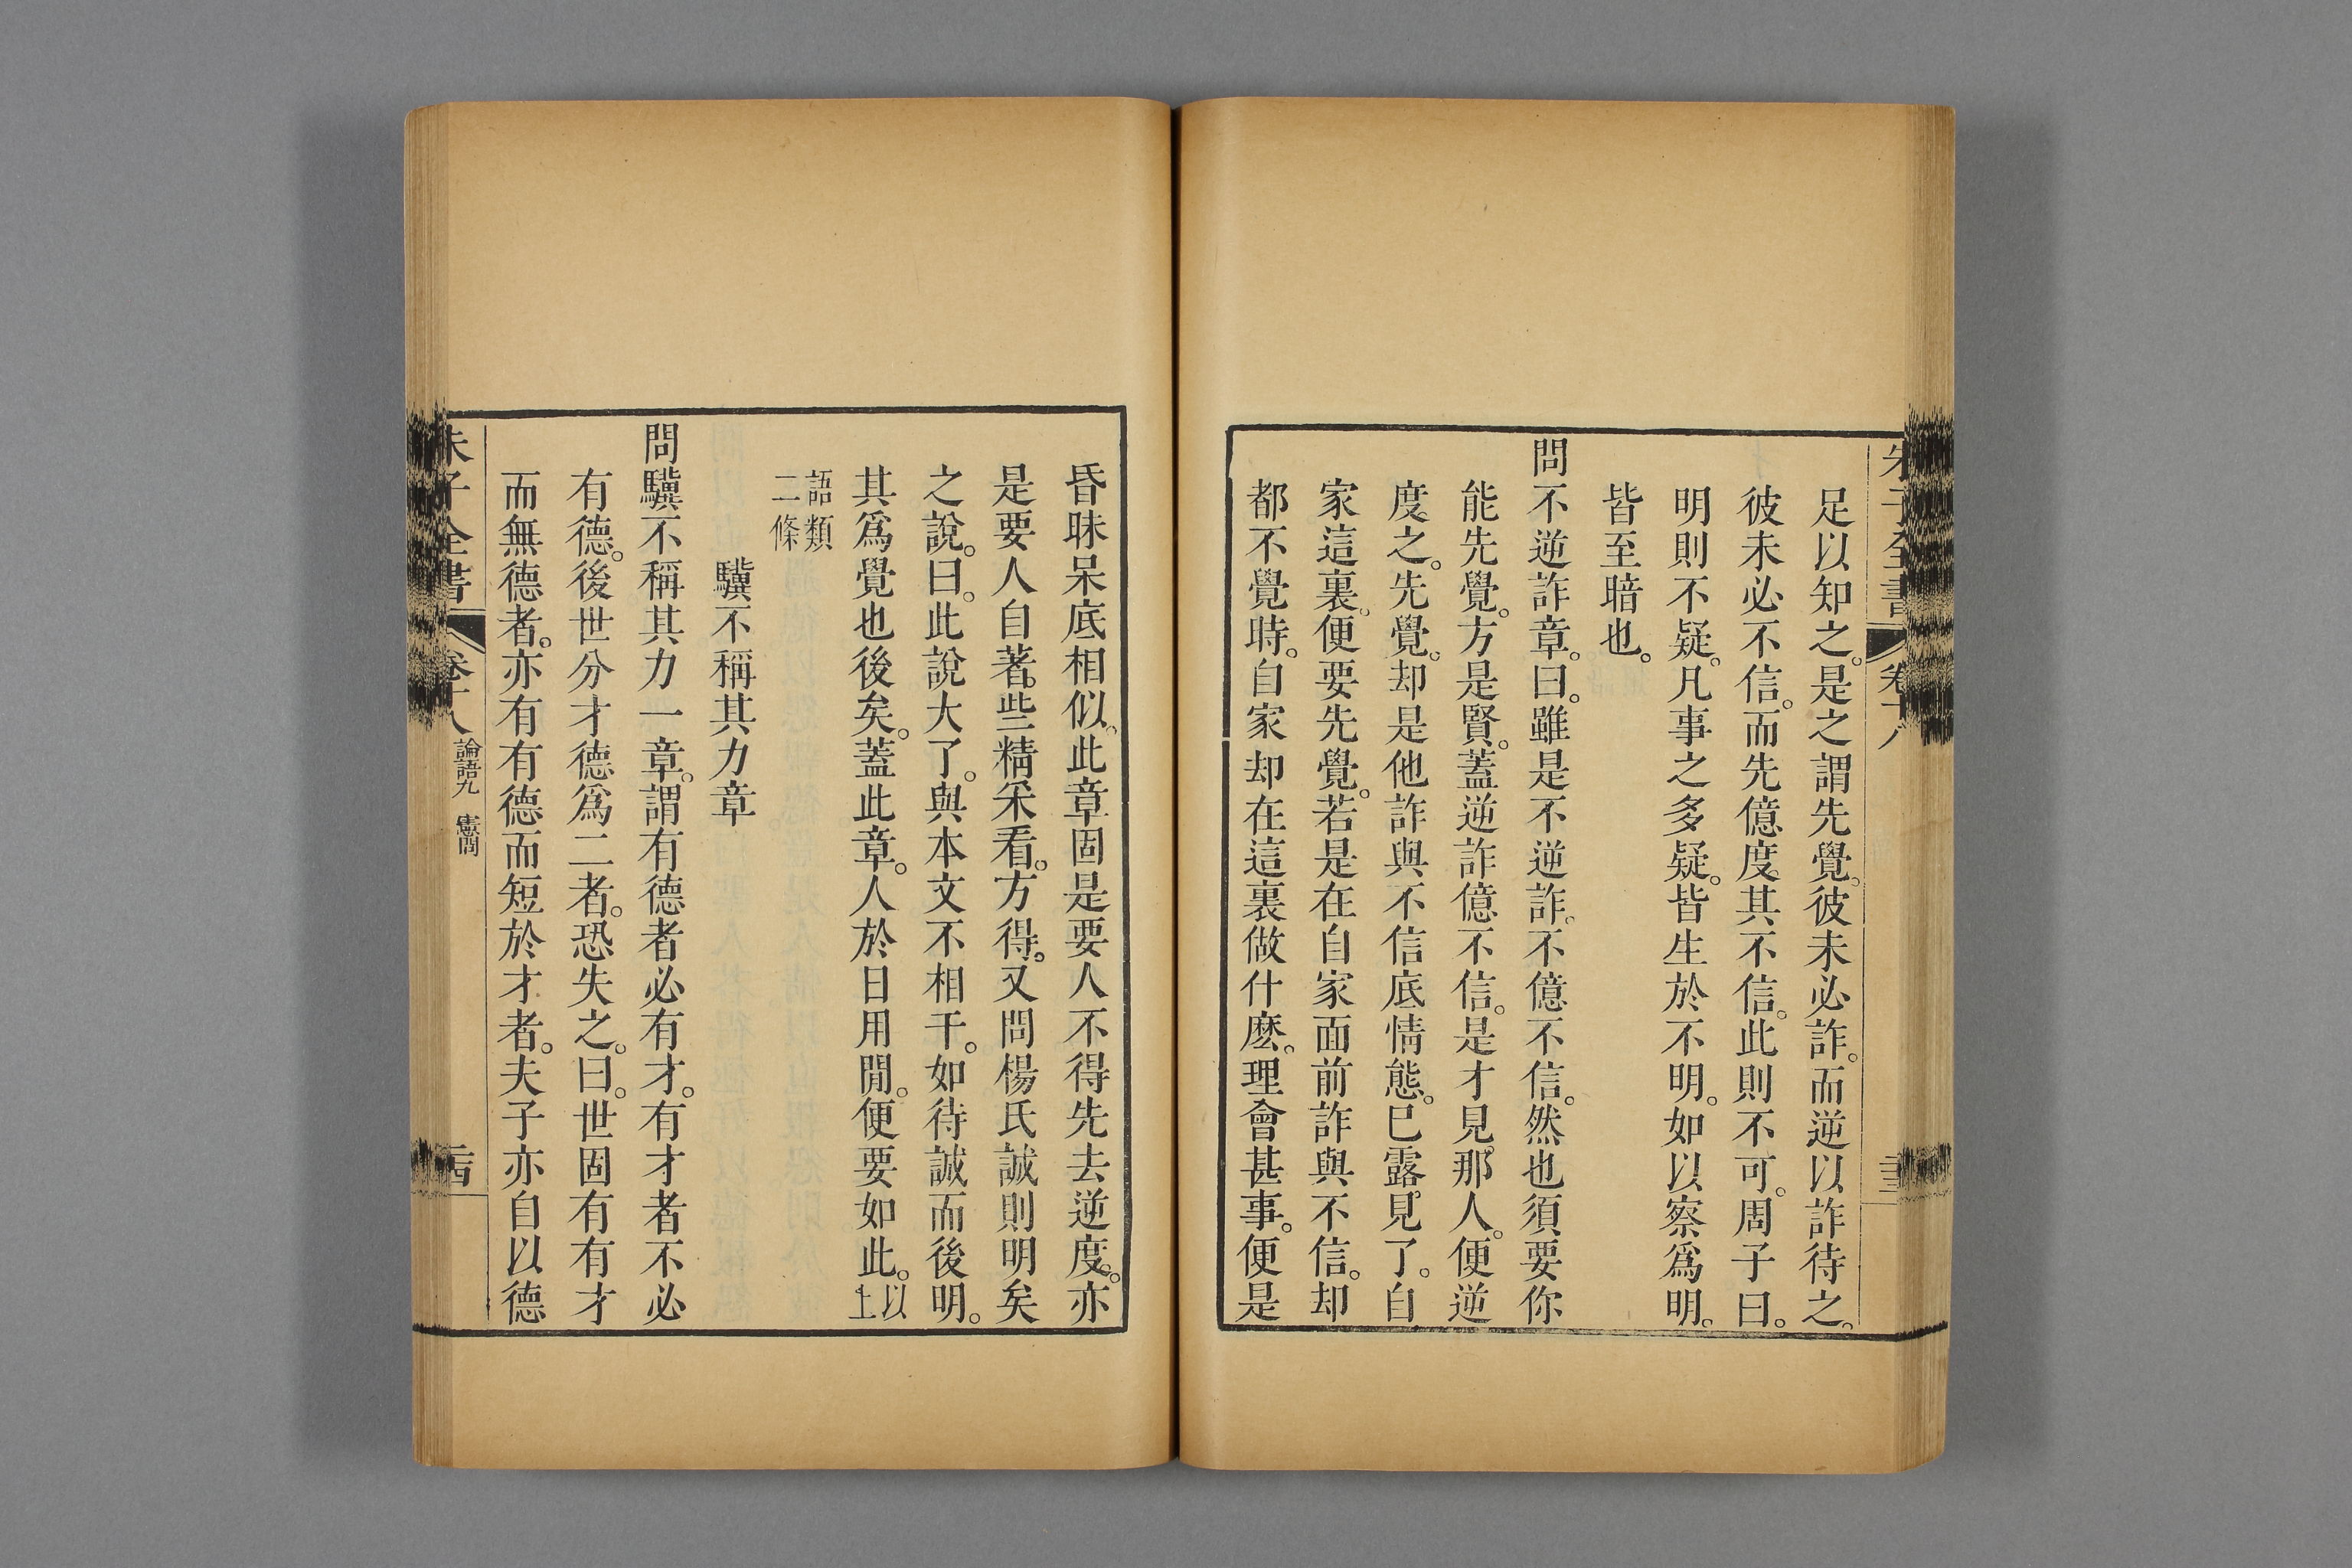 朱子全書 卷十八
足以知之。是之謂先覺。彼未必詐。而逆以詐待之。
彼未必不信。而先億度其不信。此則不可。周子曰。
明則不疑。凡事之多疑。皆生於不明。如以察爲明。
皆至暗也。
問不逆詐章。曰。雖是不逆詐。不億不信。然也須要你
能先覺。方是賢。蓋逆詐億不信。是才見那人。便逆
度之。先覺。却是他詐與不信底情態。已露見了。自
家這裏。便要先覺。若是在自家面前詐與不信。却
都不覺時。自家却在這裏做什麽。理會甚事。便是
昏昧呆底相似。此章固是要人不得先去逆度。亦
是要人自著些精采看。方得。又問楊氏誠則明矣
之說。曰。此說大了。與本文不相干。如待誠而後明。
其爲覺也後矣。蓋此章。人於日用閒。便要如此。以上
語類二條
驥不稱其力章
問驥不稱其力一章。謂有德者必有才。有才者不必
有德。後世分才德爲二者。恐失之。曰。世固有有才
而無德者。亦有有德而短於才者。夫子亦自以德
朱子全書 卷十八 論語九 憲問